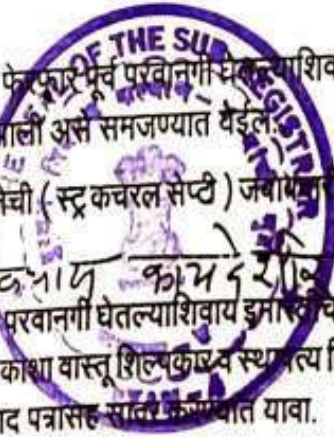 OF THE SUB REGISTRAR
फेरफार पूर्व परवानगी घेतल्याशिव
झाली असे समजण्यात येईल.
ची ( स्ट्रकचरल सेप्टी )
कायदेशीर
परवानगी घेतल्याशिवाय इमारतीच
काशा वास्तू शिल्पकार व स्थापत्य
ाद पत्रासह सादर करण्यात यावा.